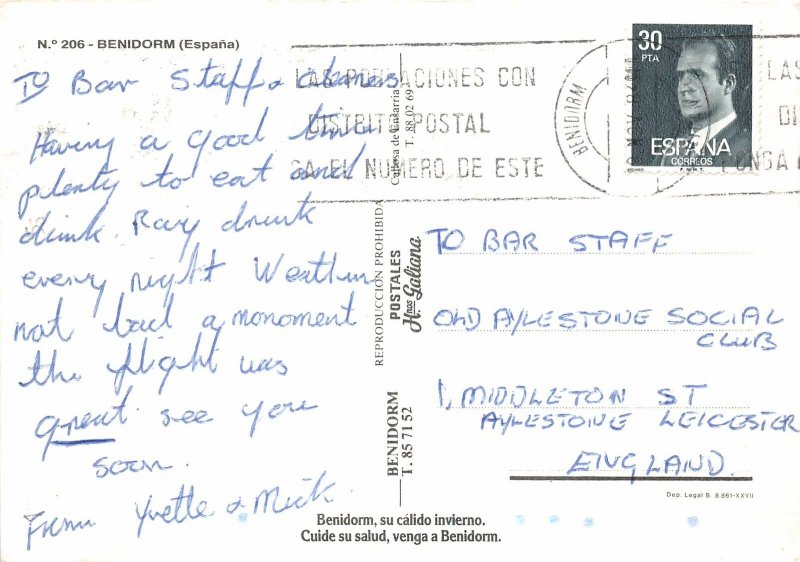 N.º 206 - BENIDORM (España)
To Bar Staff & cleaners
Having a good time
plenty to eat and
drink. Ray drunk
every night Weather
not bad a monoment
the flight was
great see you
soon.
From Yvette & Mick.
LAS POBLACIONES CON
DISTRITO POSTAL
EL NUMERO DE ESTE
BENIDORM
30
PTA
ESPAÑA
CORREOS
F.N.M.T.
LAS
DI
PONGA
Callosa de Ensarria
T. 88 02 69
REPRODUCCIÓN PROHIBIDA
POSTALES
Hnos Galiana
BENIDORM
T. 85 71 52
TO BAR STAFF
OLD AYLESTONE SOCIAL
CLUB
1, MIDDLETON ST
AYLESTONE LEICESTER
ENGLAND.
Dep. Legal B. 8 861-XXVII
Benidorm, su cálido invierno.
Cuide su salud, venga a Benidorm.